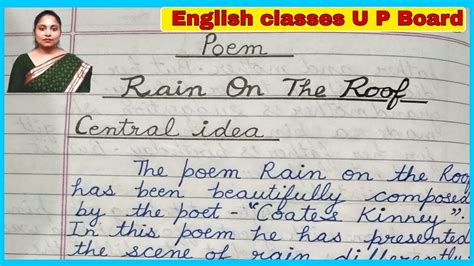 English classes U P Board
Poem
Rain On The Roof
Central idea
The poem Rain on the Roof
has been beautifully composed
by the poet - "Coates Kinney".
In this poem he has presented
the scene of rain differently